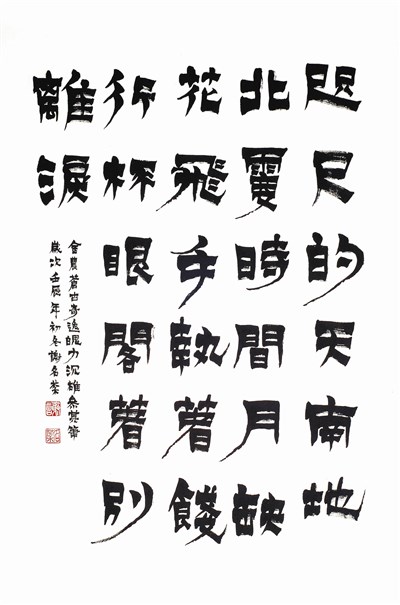 咫尺的天南地
北霎時間月缺
花飛手執著餞
行杯眼閣著別
離淚
金農蒼古奇逸魄力沉雄參其筆
歲次壬辰年初冬